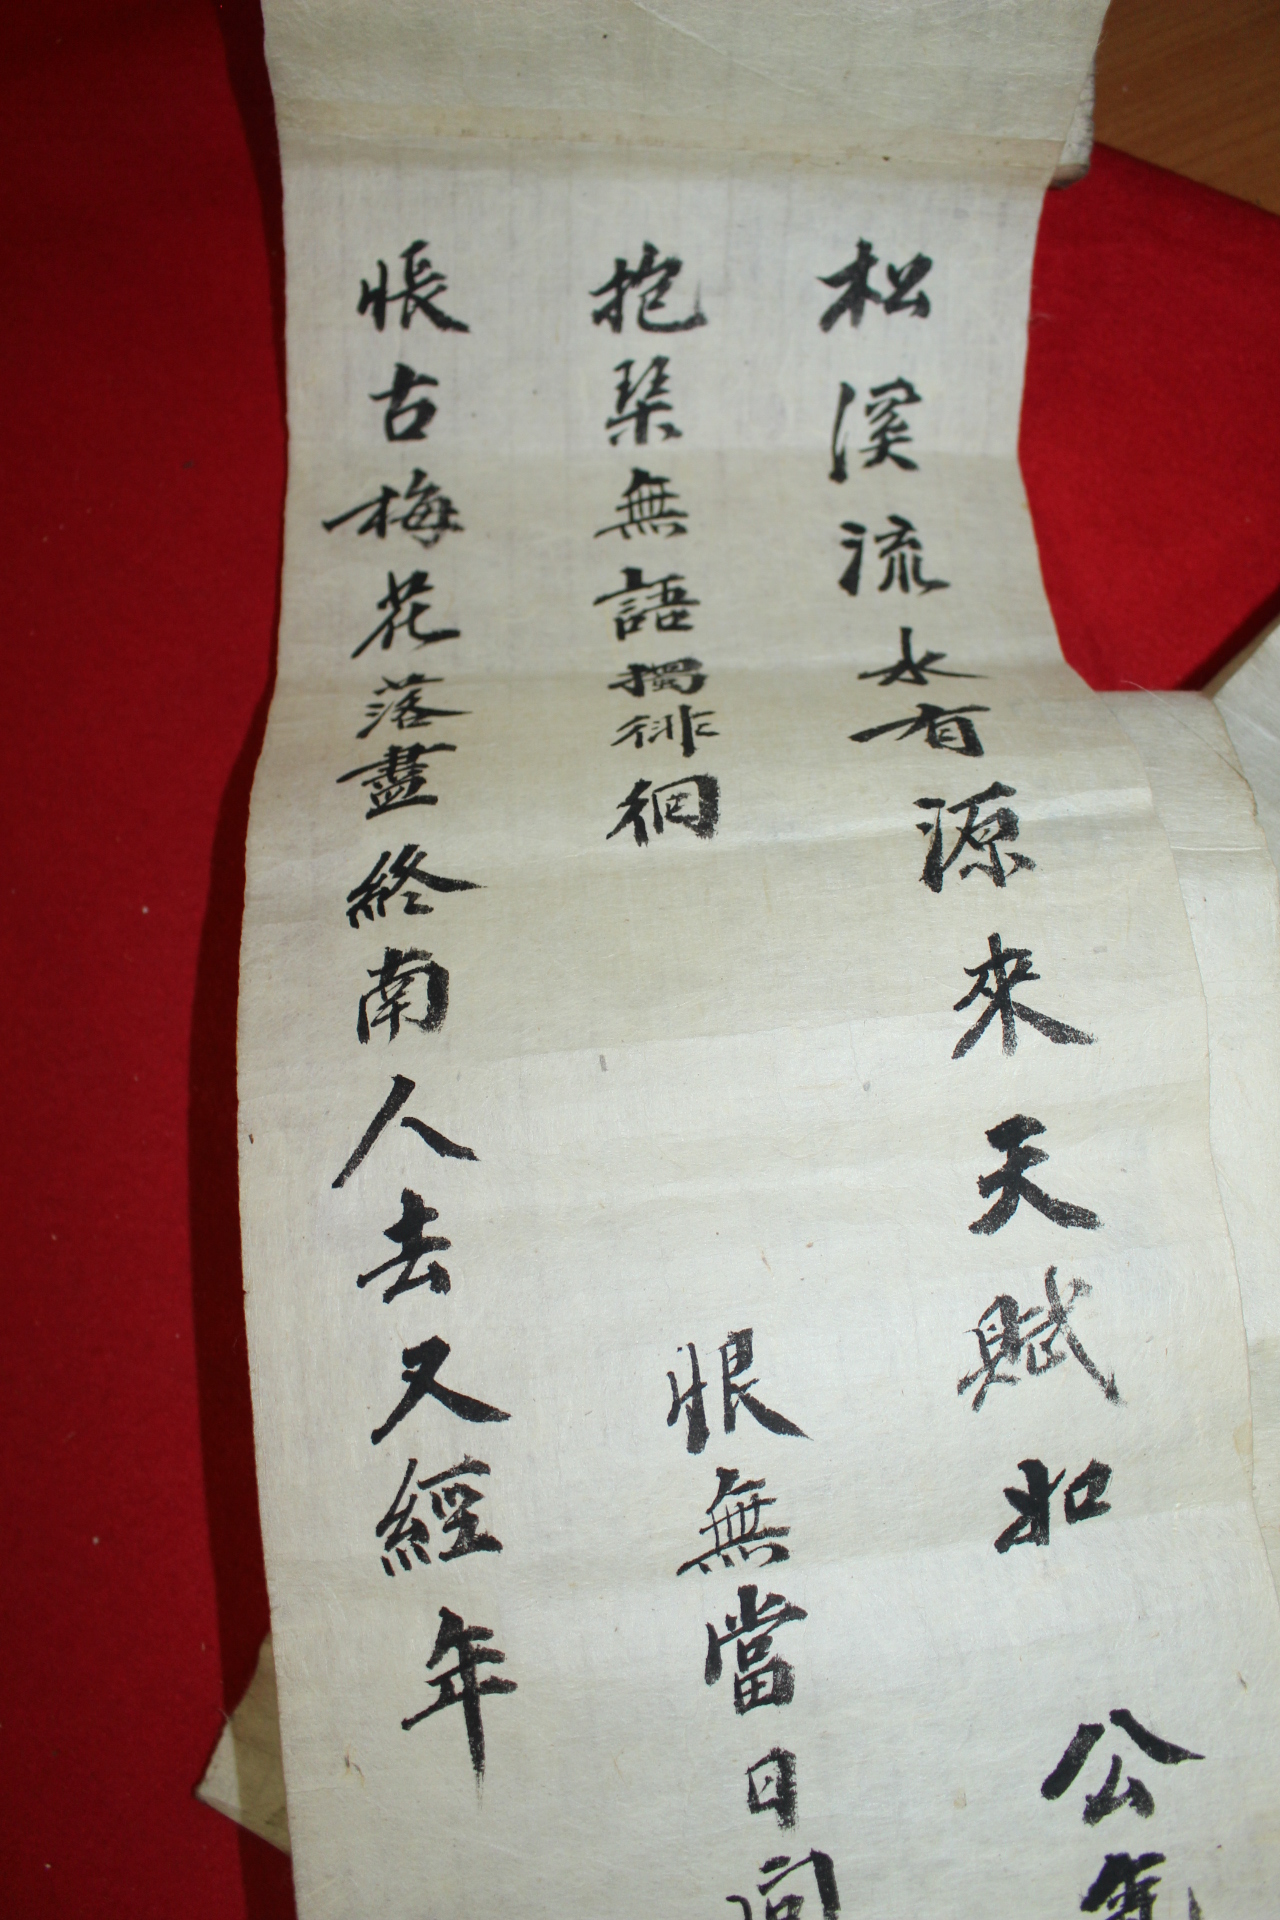 松溪流水有源來天賦如 公
抱琹無語獨徘徊 恨無當日
悵古梅花落盡終南人去又經年